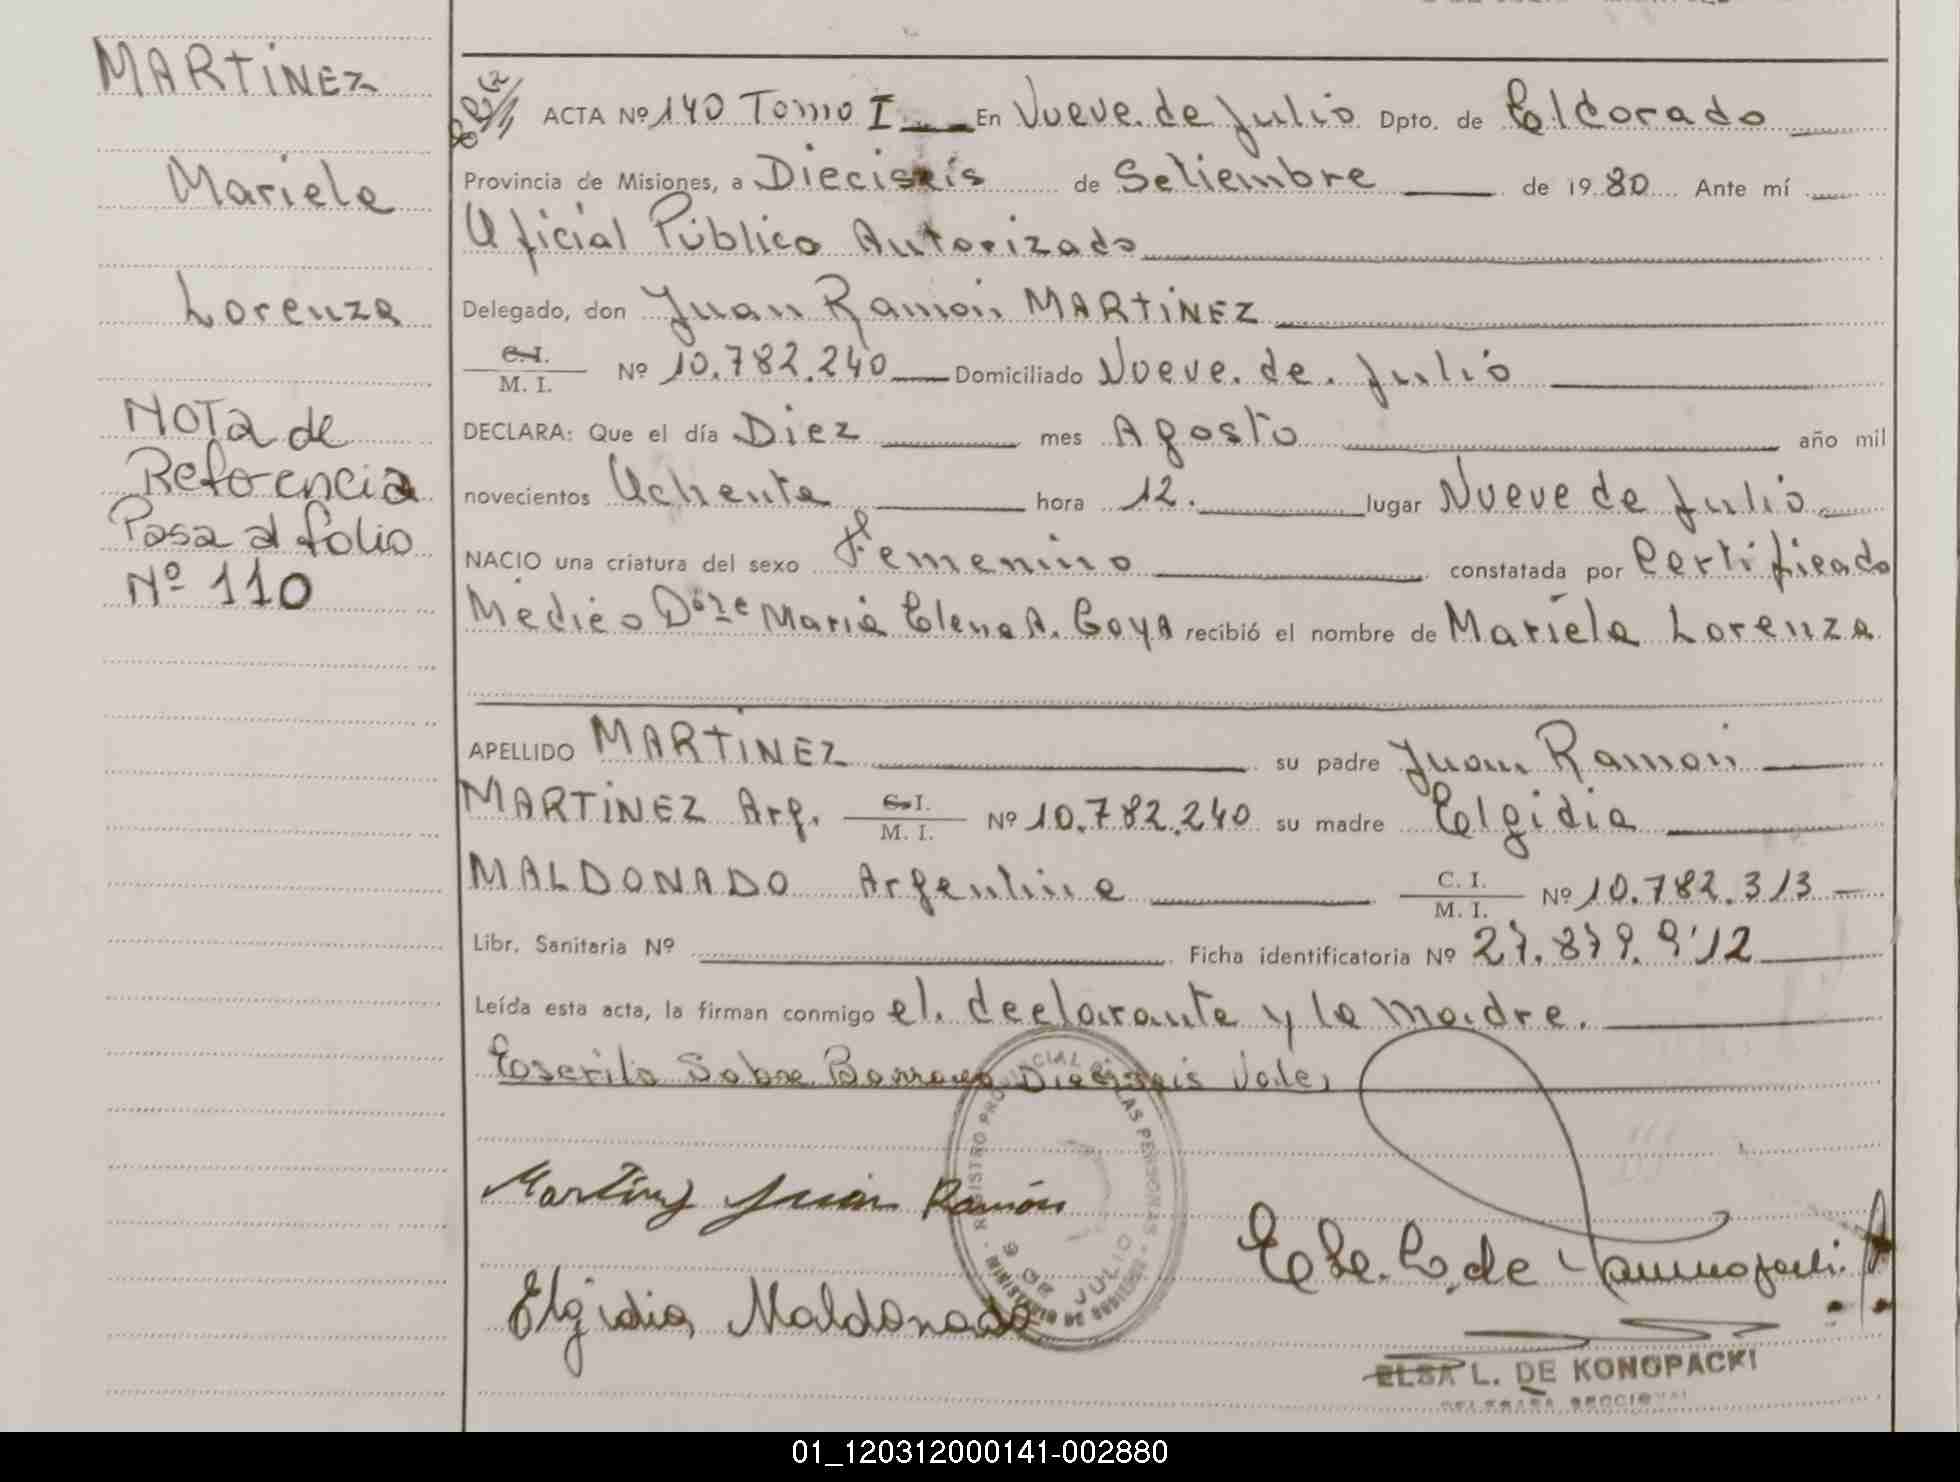 MARTINEZ
Mariela
Lorenza
NOTA de
Referencia
Pasa al folio
Nº 110
ACTA Nº 140 Tomo I En Nueve de Julio Dpto. de Eldorado
Provincia de Misiones, a Dieciseis de Setiembre de 1980 Ante mí
Oficial Público Autorizado
Delegado, don Juan Ramón MARTINEZ
C.I.
M. I. Nº 10.782.240 Domiciliado Nueve de Julio
DECLARA: Que el día Diez mes Agosto año mil
novecientos Ochenta hora 12. lugar Nueve de Julio
NACIO una criatura del sexo Femenino constatada por Certificado
Medico Dora Maria Elena A. Goya recibió el nombre de Mariela Lorenza
APELLIDO MARTINEZ su padre Juan Ramón
MARTINEZ Arg. C.I. M. I. Nº 10.782.240 su madre Elgidia
MALDONADO Argentina C. I. M. I. Nº 10.782.313
Libr. Sanitaria Nº Ficha identificatoria Nº 27.879.912
Leída esta acta, la firman conmigo el declarante y la madre.
Escrito Sobre Borrado Dieciseis Vale,
Martinez Juan Ramón
Elgidia Maldonado
9 DE JULIO
MINISTERIO DE GOBIERNO
ELSA L. DE KONOPACKI
DELEGADA SECCIONAL
01_120312000141-002880